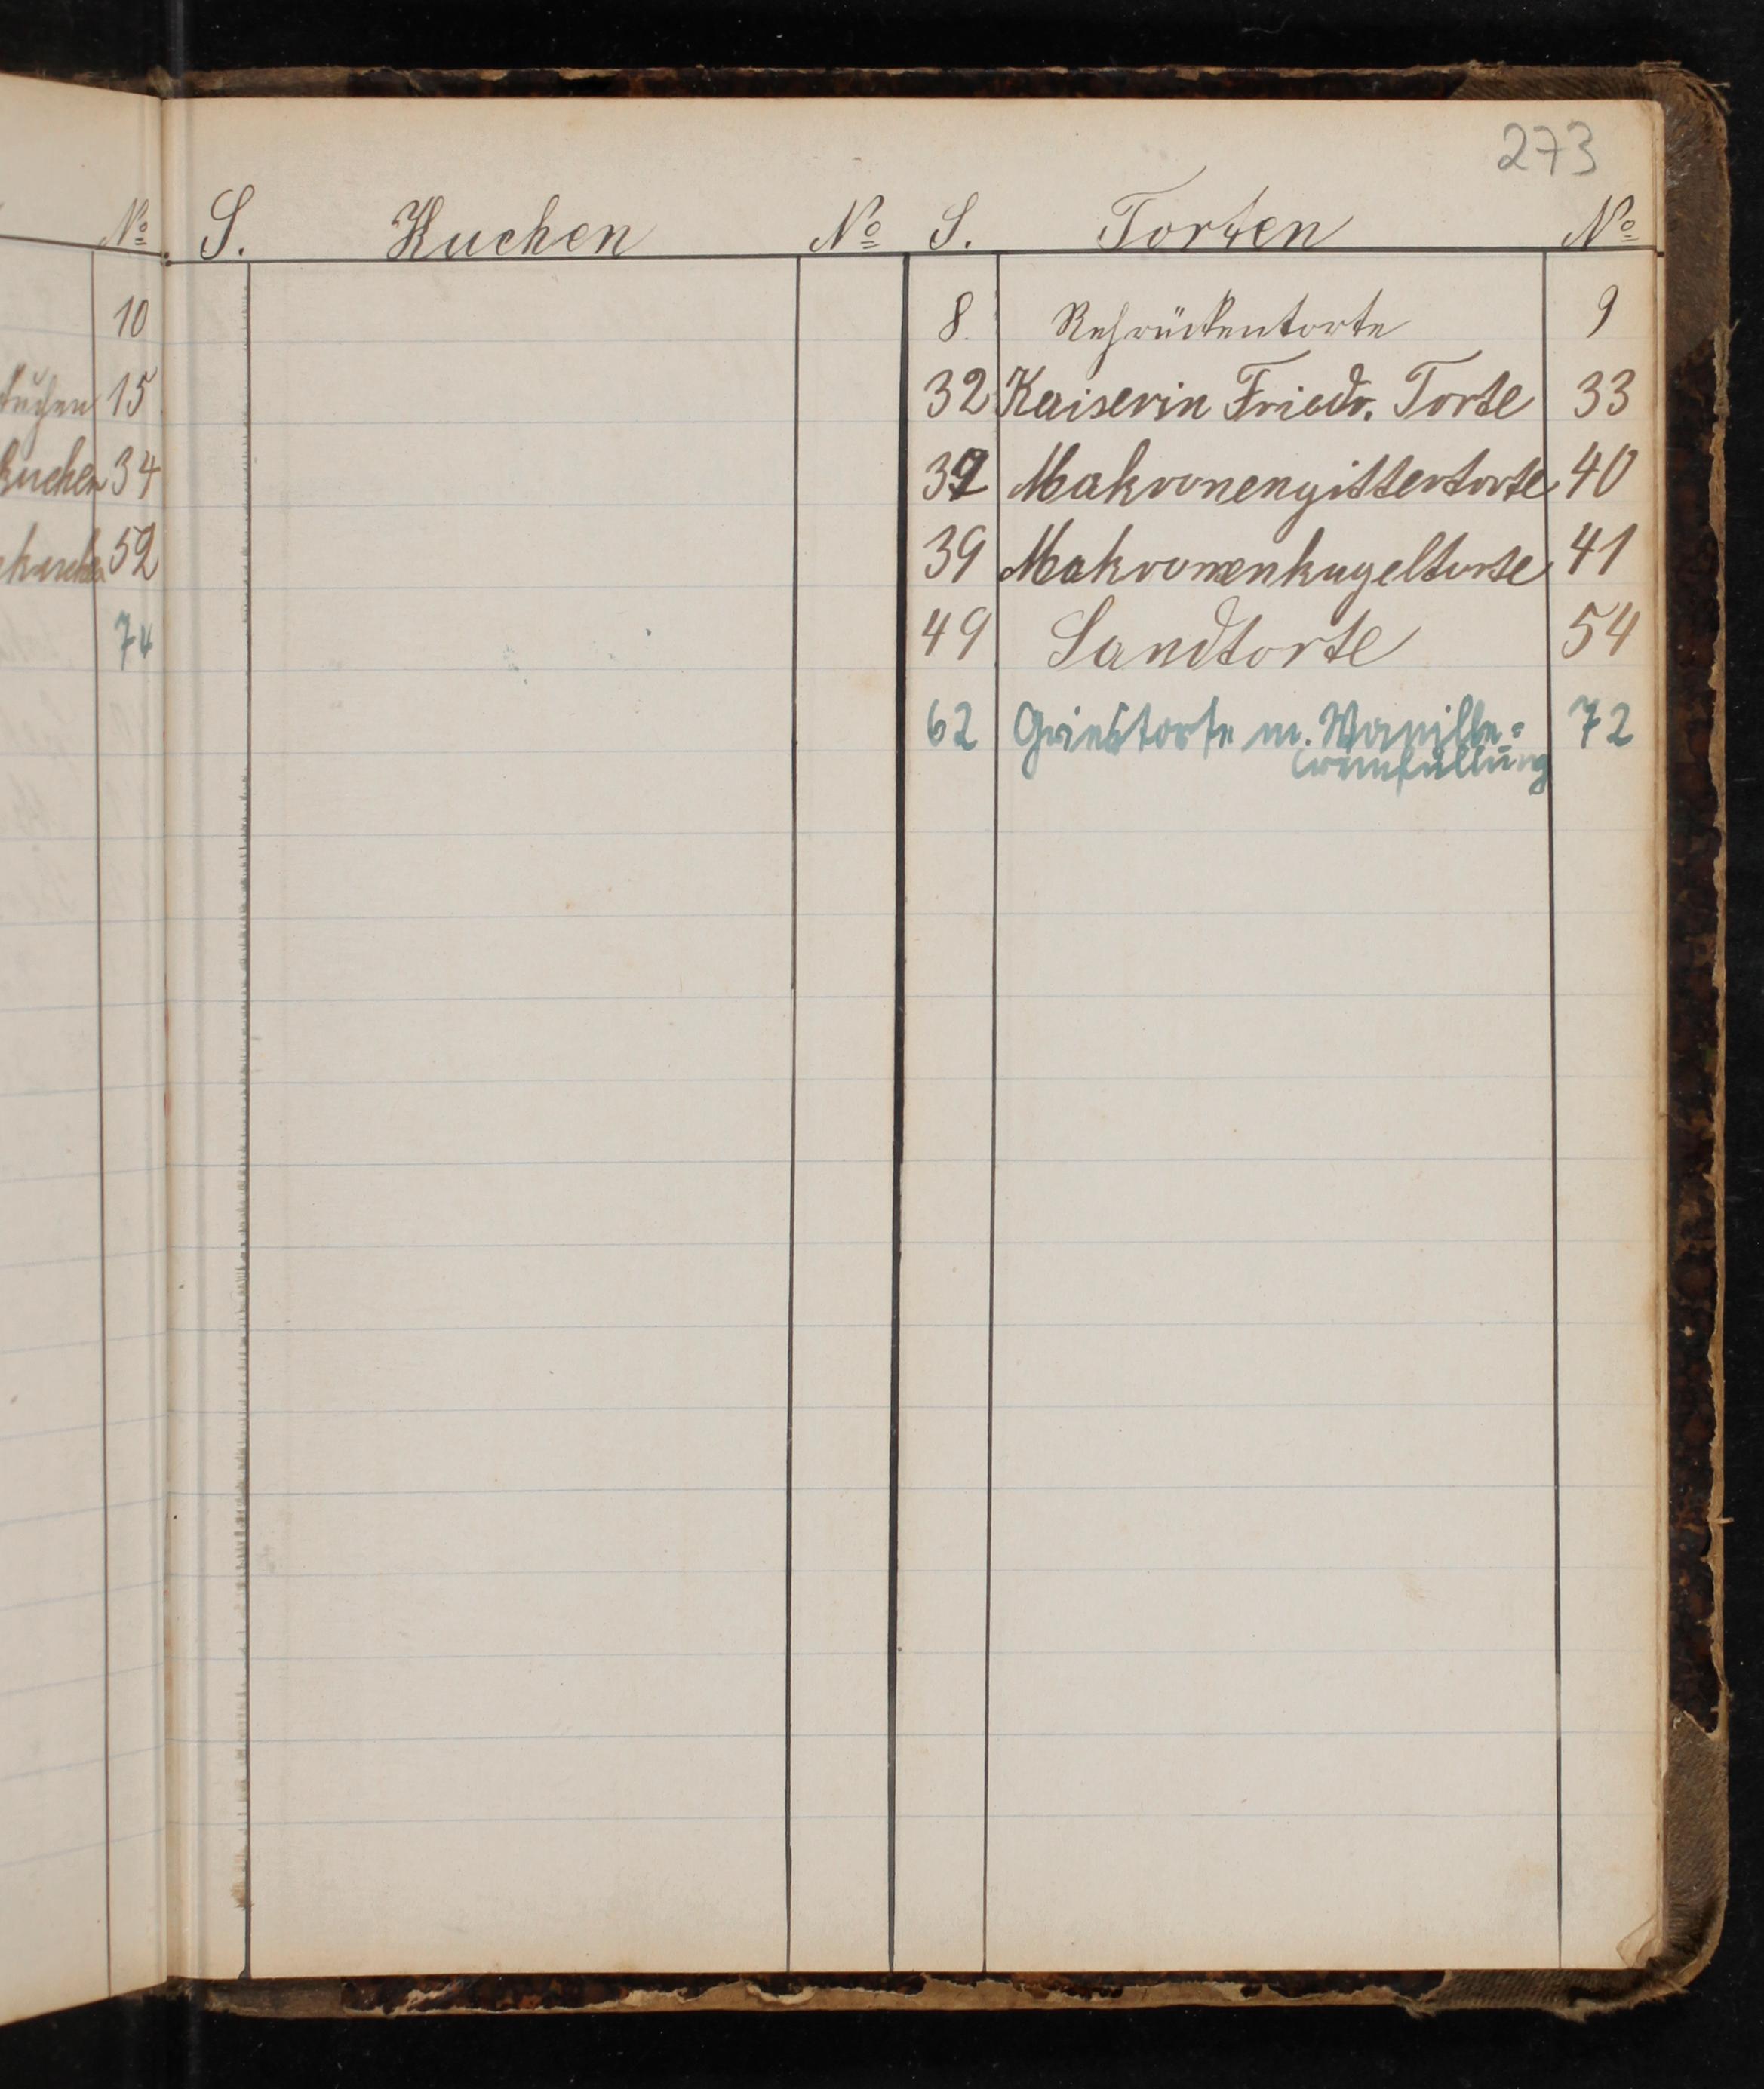 273
№ S. Kuchen № S. Torten №
10 8. Rehrückentorte 9
kuchen 15 32 Kaiserin Friedr. Torte 33
kuchen 34 39 Makronengittertorte 40
kuchen 52 39 Makronenkugeltorte 41
74 49 Sandtorte 54
62 Grießtorte m. Vanille= 72
cremfüllung